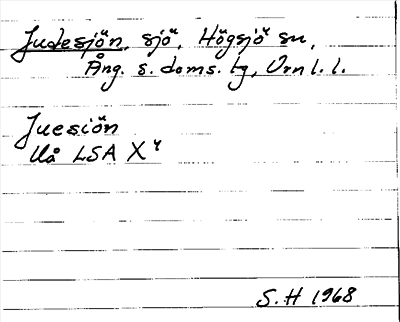 Judesjön, sjö, Högsjö sn,
Ång. s. doms. tg, Vrnl. l.
Juesiön
Uå LSA X4
S.H 1968